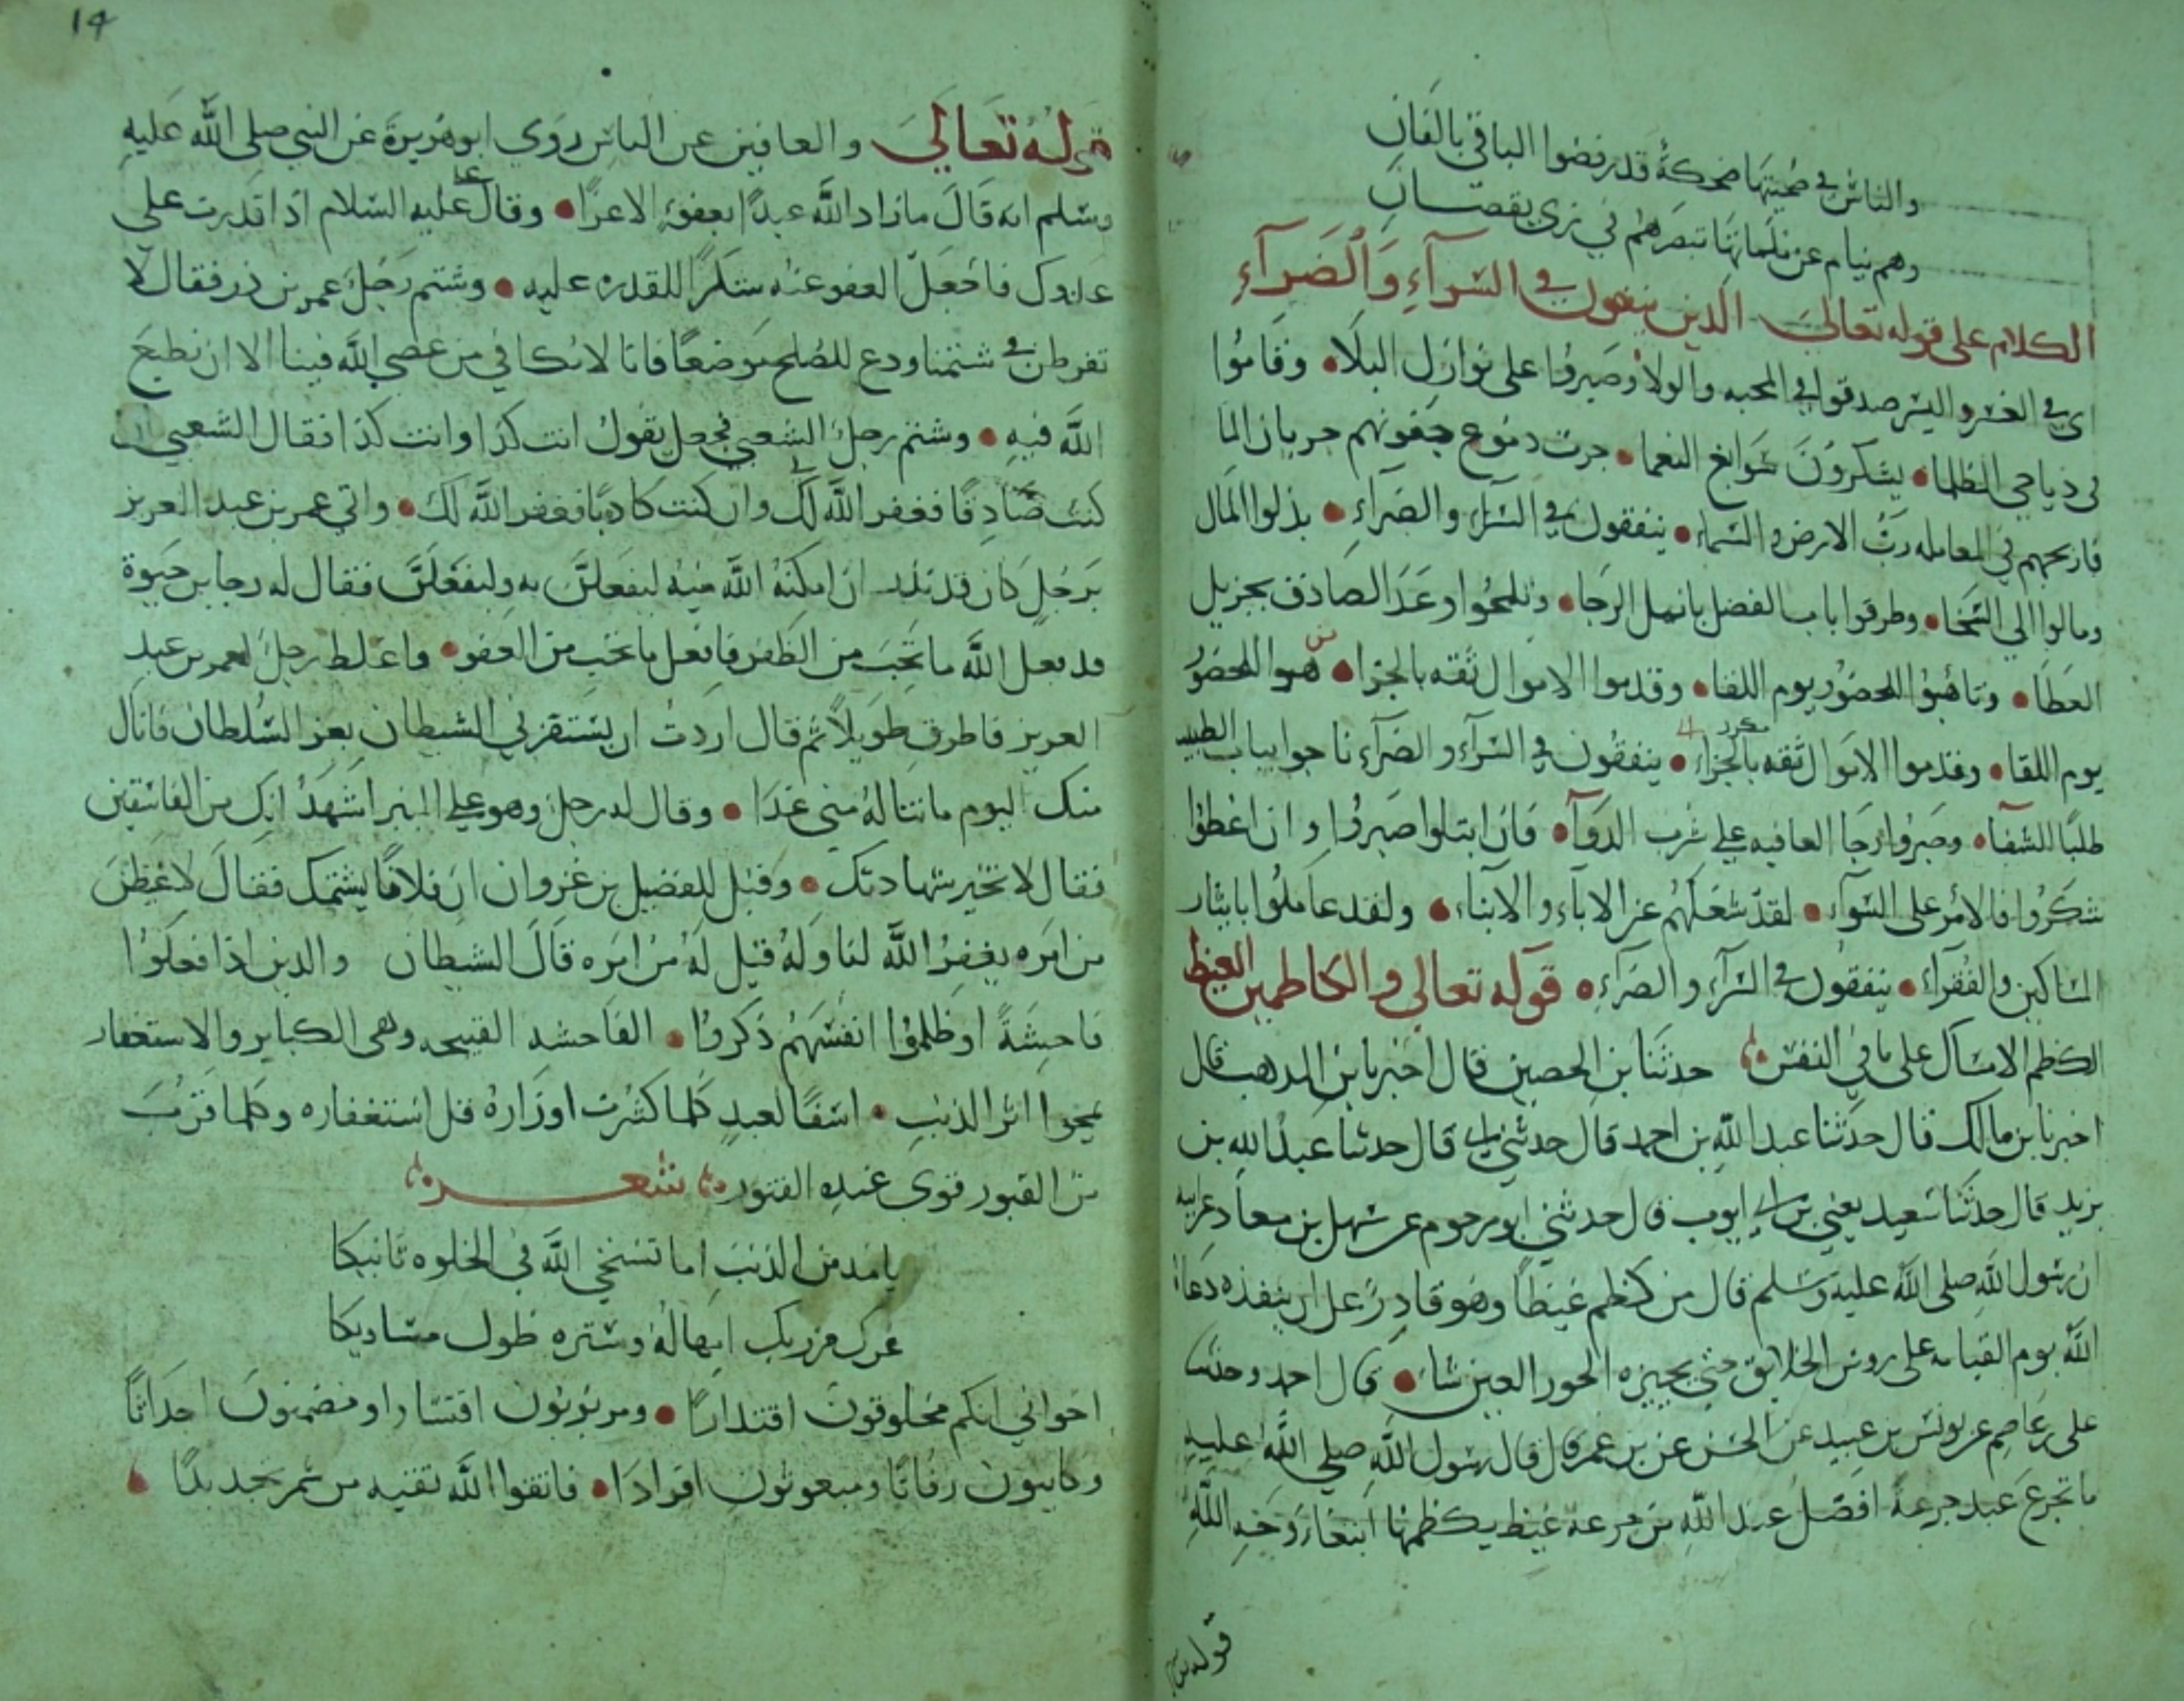 والناس في ضحيتها ضحكة قد رفضوا الباقي بالفان
وهم نيام عن ملماتها تبصرهم في زي يقصان
الكلام على قوله تعالى الذين ينفقون في السرآء والضرآء
اى في العسر واليسر صدقوا في المحبه والولا وصبروا على نوازل البلا• وقاموا
في دياجي الظلما• يشكرون سوابغ النعما• جرت دموع جفونهم جريان الما
فاربحهم في المعامله رب الارض والسماء• ينفقون في السرآء والضرآء• بذلوا المال
ومالوا الي السخا• وطرقوا باب الفضل بانمل الرجا• وتلمحوا وعد الصادق بجزيل
العطا• وتاهبوا للحضور يوم اللقا• وقدموا الاموال ثقه بالجزا• هـوا للحضور
يوم اللقا• وقدموا الاموال ثقه بالجزاء• ينفقون في السرآء والضرآء ناحوا بباب الطبيب
طلبا للشفآ• وصبروا رجا العافيه على شرب الدوآ• فان ابتلوا صبروا وان اعطوا
شكروا فالامر على السوآء• لقد شغلهم عن الاباء والابناء• ولقد عاملوا بايثار
المساكين والفقراء• ينفقون في السرآء والضرآء• قوله تعالى والكاظمين الغيظ
الكظم الامساك على ما في النفس حدثنا بن الحصين قال اخبرنا بن المدهب قال
اخبرنا بن مالك قال حدثنا عبد الله بن احمد قال حدثني ابي قال حدثنا عبد الله بن
يزيد قال حدثنا سعيد يعني بن ابي ايوب قال حدثني ابو مرحوم عن سهل بن معاد عن ابيه
ان رسول الله صلى الله عليه وسلم قال من كظم غيظا وهو قادر على ان ينفذه دعاه
الله يوم القيامه على روس الخلايق حتى يخيره الحور العين شا• قال احمد وحدثنا
على بن عاصم عن يونس بن عبيد عن الحسن عن بن عمر قال قال رسول الله صلي الله عليه
ما تجرع عبد جرعة افضل عند الله من جرعة غيظ يكظمها ابتغاء وجه الله
قوله
14
قوله تعالى والعافين عن الناس روي ابو هريرة عن النبي صلى الله عليه
وسلم انه قال ما زاد الله عبدا بعفو الا عزا• وقال عليه السلام اذا قدرت على
عدوك فاجعل العفو عنه شكرا للقدره عليه• وشتم رجل عمر بن ذر فقال لا
تفرطن في شتمنا ودع للصلح موضعا فانا لا نكافي من عصى الله فينا الا ان نطيع
الله فيه• وشتم رجل الشعبي فجعل يقول انت كذا وانت كذا فقال الشعبي ان
كنت صادقا فغفر الله لي وان كنت كاذبا فغفر الله لك• واتي عمر بن عبد العزيز
برجل كان قد نذر ان امكنه الله منه ليفعلن به وليفعلن فقال له رجا بن حيوة
قد فعل الله ما تحب من الظفر فافعل ما تحب من العفو• واغلط رجل لعمر بن عبد
العزيز فاطرق طويلا ثم قال اردت ان يستفزني الشيطان بعز السلطان فانال
منك اليوم ما تناله مني غدا• وقال له رجل وهو على المنبر اشهد انك من الفاسقين
فقال لا تخير شهادتك• وقيل للفضيل بن غزوان ان فلانا يشتمك فقال لاغيظن
من امره يغفر الله لنا وله قيل له من امره قال الشيطان والذين اذا فعلوا
فاحشة او ظلموا انفسهم ذكروا• الفاحشه القبيحه وهى الكباير والاستغفار
يمحوا اثر الذنب• اسفا لعبد كلما كثرت اوزاره قل استغفاره وكلما قرب
من القبور قوى عنده الفتور شعـــر
يا مدمن الذنب اما تستحي الله في الخلوه ثانيكا
غرك من ربك امهاله وستره طول مساويكا
اخواني انكم مخلوقون اقتدارا• ومربوبون اقتسارا ومضمنون اجداثا
وكاينون رفاتا ومبعوثون افرادا• فاتقوا الله تقيه من شمر تجديدا